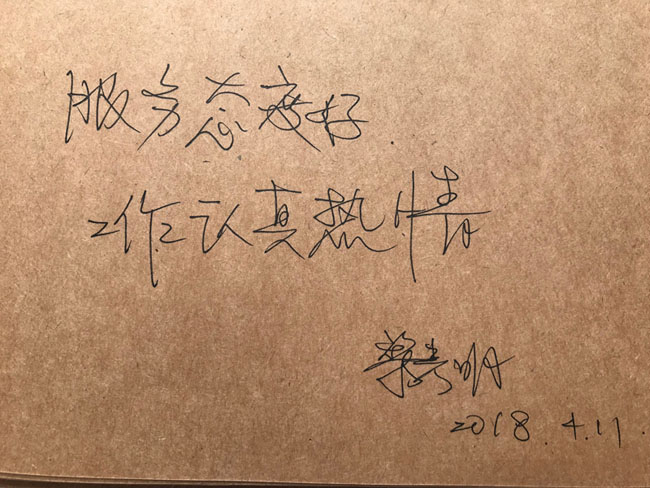 服务态度好
工作认真热情
2018.4.11.